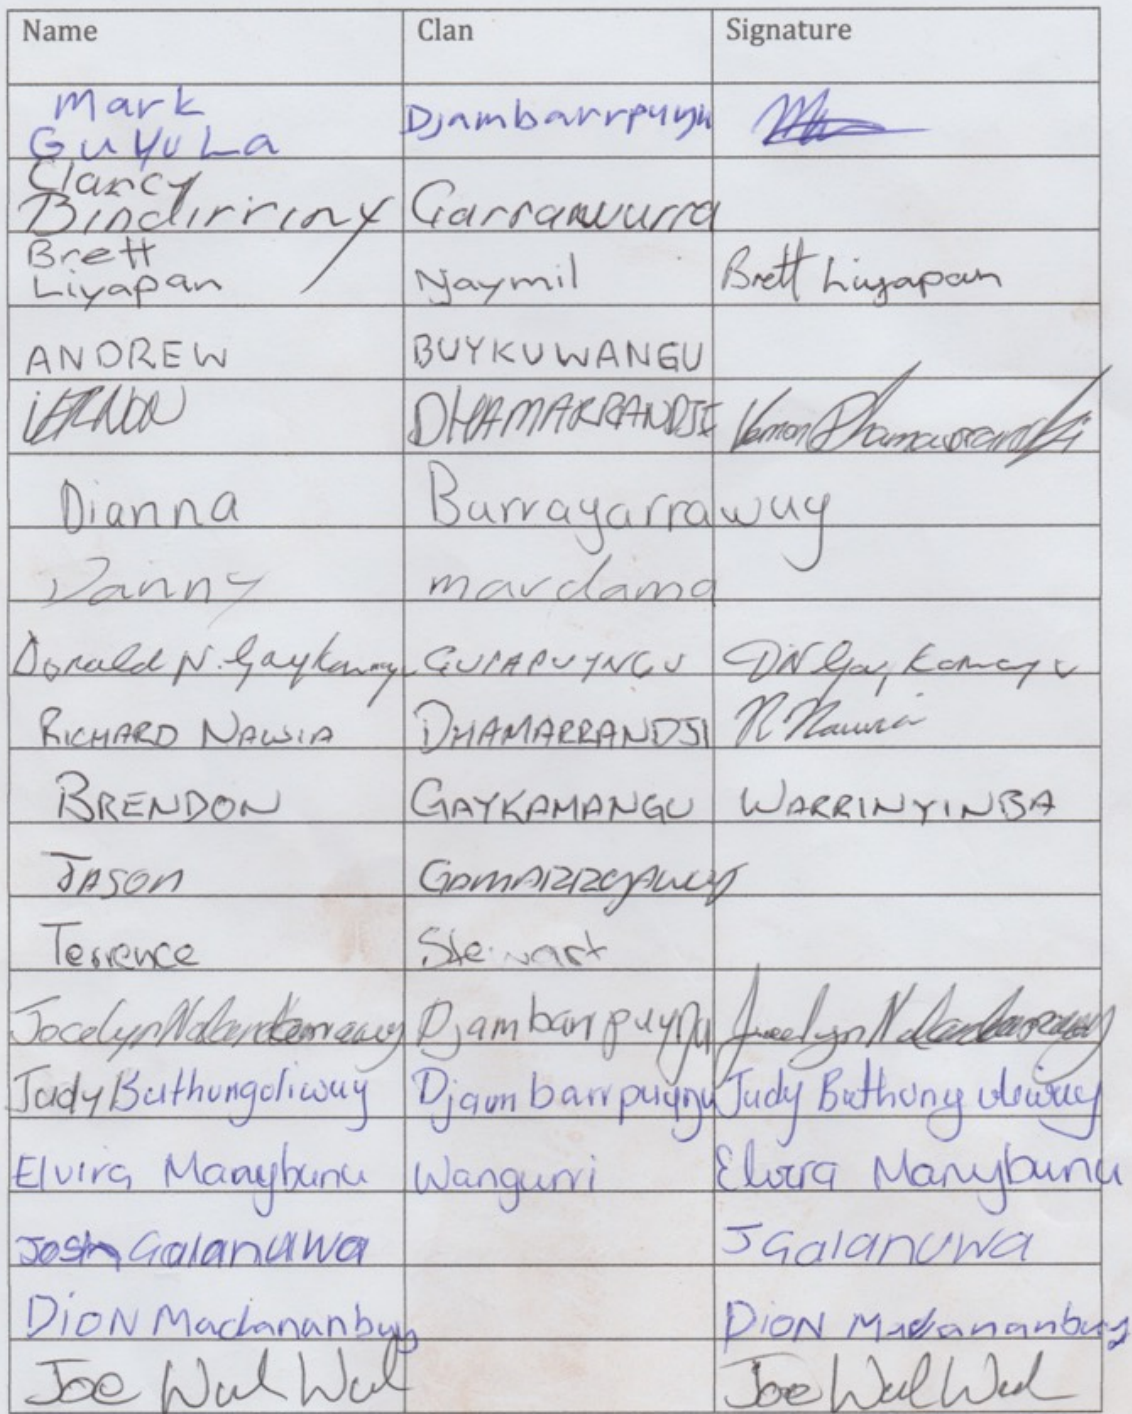 Name Clan Signature
Mark
Guyula Djambarrpuyŋu
Clancy
Bindirriny Garrawurra
Brett
Liyapan Ŋaymil Brett Liyapan
ANDREW BUYKUWANGU
VERNON DHAMARRANDJI Vernon Dhamarrandji
Dianna Burrayarrawuy
Danny mardama
Donald N. Gaykamaŋu GUPAPUYNGU DN Gaykamaŋu
RICHARD NAWIA DHAMARRANDJI R Nawia
BRENDON GAYKAMANGU WARRINYINBA
JASON
Terrence Stewart
Jocelyn Djambarrpuyŋu Jocelyn
Judy Buthungdiwuy Djambarrpuyŋu Judy
Elvira Manybunu Wangurri Elvira Manybunu
Josh Galanuwa J Galanuwa
DION Madananbuy DION Madananbuy
Joe Wul Wul Joe Wul Wul